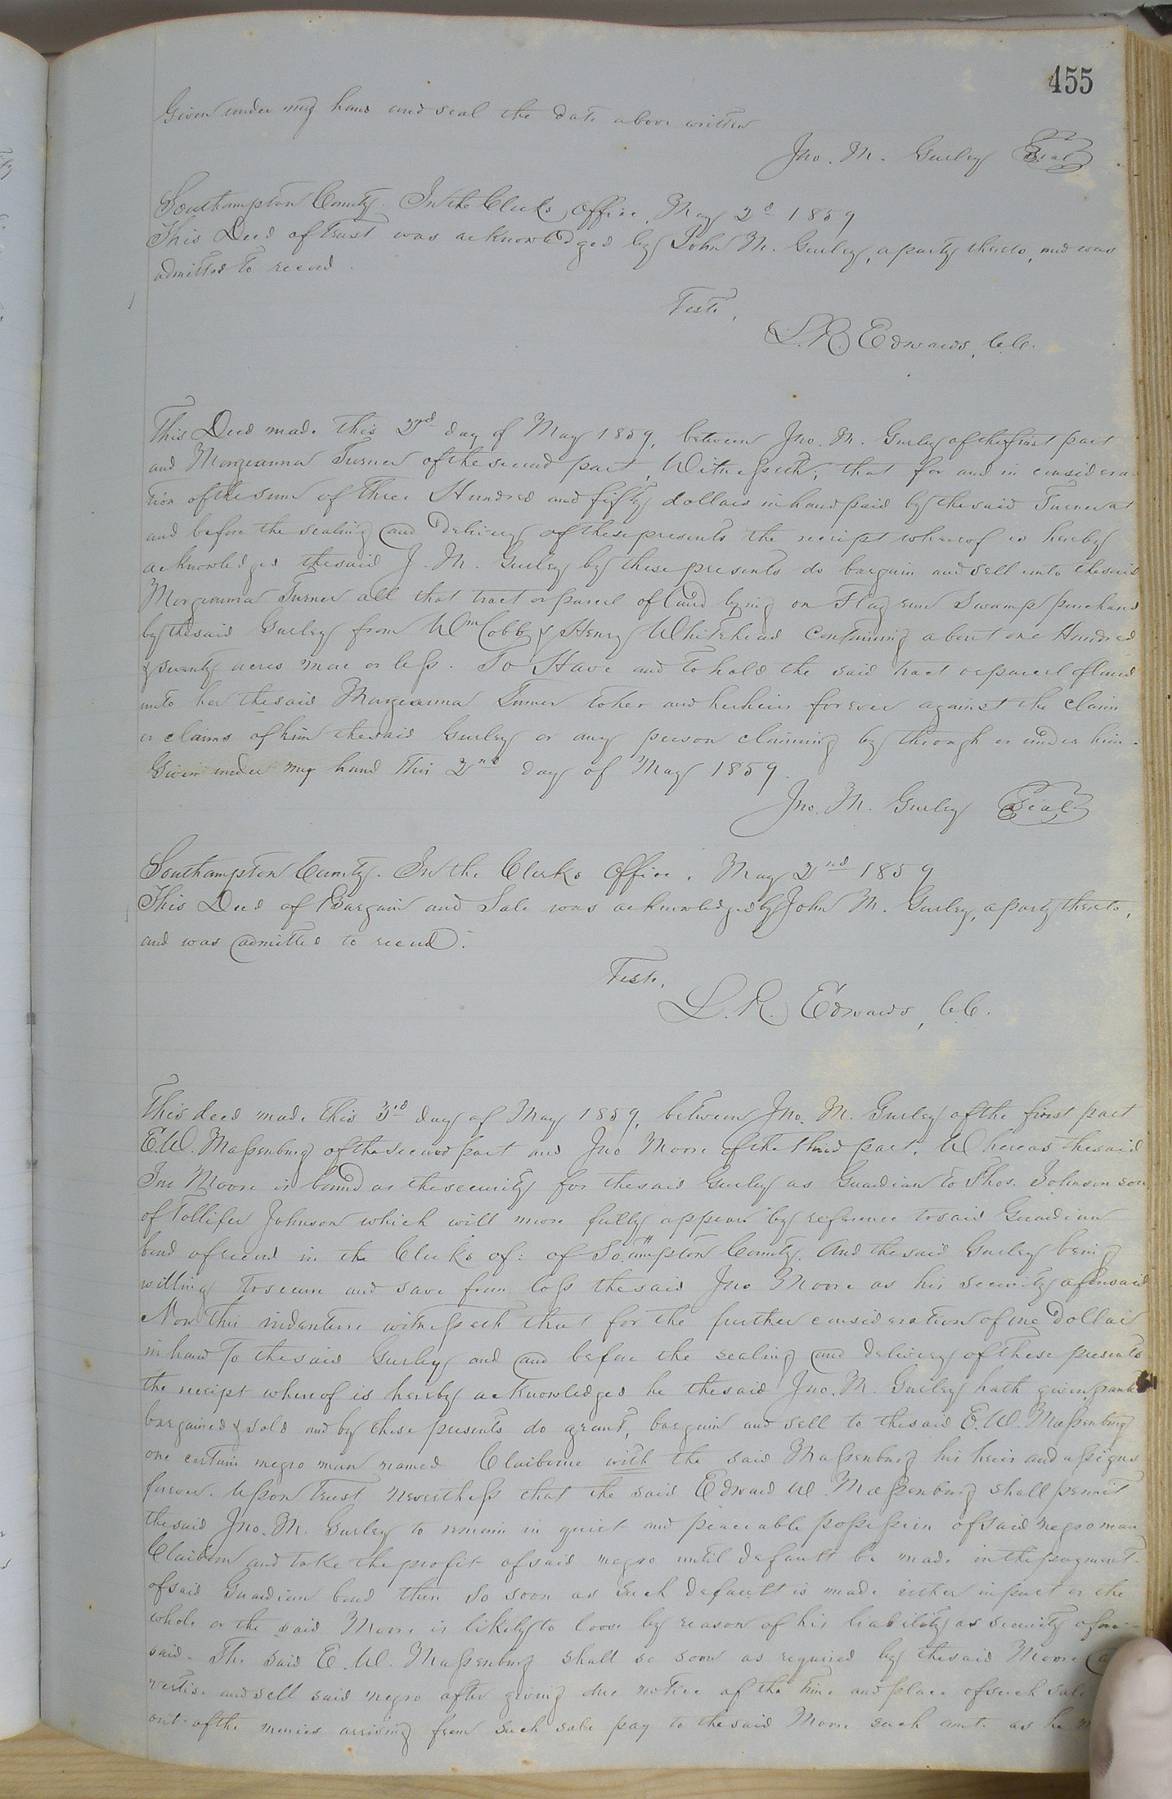 455
Given under my hand and seal the date above written
Jno. M. Gurley Seal
Southampton County. In the Clerks Office, May 2d 1859
This Deed of Trust was acknowledged by John M. Gurley, a party thereto, and was
admitted to record.
Teste,
L. R. Edwards, C.C.
This Deed made this 2nd day of May 1859, between Jno. M. Gurley of the first part
and Morgianna Turner of the second part, Witnesseth; that for and in considera-
tion of the sum of Three Hundred and fifty dollars in hand paid by the said Turner at
and before the sealing and delivery of these presents the receipt whereof is hereby
acknowledged the said J. M. Gurley by these presents do bargain and sell unto the said
Morgianna Turner all that tract or parcel of land lying on Flag run Swamp purchased
by the said Gurley from Wm Cobb & Henry Whitehead containing about one Hundred
& seventy acres more or less. To Have and to hold the said tract or parcel of land
unto her the said Morgianna Turner to her and her heirs forever against the claim
or claims of him the said Gurley or any person claiming by through or under him.
Given under my hand this 2nd day of May 1859.
Jno. M. Gurley Seal
Southampton County. In the Clerks Office, May 2nd 1859
This Deed of Bargain and Sale was acknowledged by John M. Gurley, a party thereto,
and was admitted to record.
Teste,
L. R. Edwards, C.C.
This deed made this 3rd day of May 1859, between Jno. M. Gurley of the first part
E. W. Massenburg of the second part and Jno Moore of the third part. Whereas the said
Jno Moore is bound as the security for the said Gurley as Guardian to Thos. Johnson son
of Tollifer Johnson which will more fully appear by reference to said Guardian
bond of record in the Clerks of: of So.ampton County. And the said Gurley being
willing to secure and save from loss the said Jno Moore as his security aforesaid
Now this indenture witnesseth that for the further consideration of one Dollar
in hand to the said Gurley and and before the sealing and delivery of these presents
the receipt whereof is hereby acknowledged he the said Jno. M. Gurley hath given, granted
bargained & sold and by these presents do grant, bargain and sell to the said E. W. Massenburg
one certain negro man named Claiborne with the said Massenburg his heirs and assigns
forever. Upon Trust nevertheless that the said Edward W. Massenburg shall permit
the said Jno. M. Gurley to remain in quiet and peaceable possession of said negro man
Claiborn and take the profit of said negro until default be made in the payment
of said Guardian bond then so soon as such default is made either in part or the
whole or the said Moore is likely to loose by reason of his liability as security afore-
said. The said E. W. Massenburg shall so soon as required by the said Moore
vertise and sell said negro after giving due notice of the time and place of such sale
out of the monies arriving from such sale pay to the said Moore such amt. as he